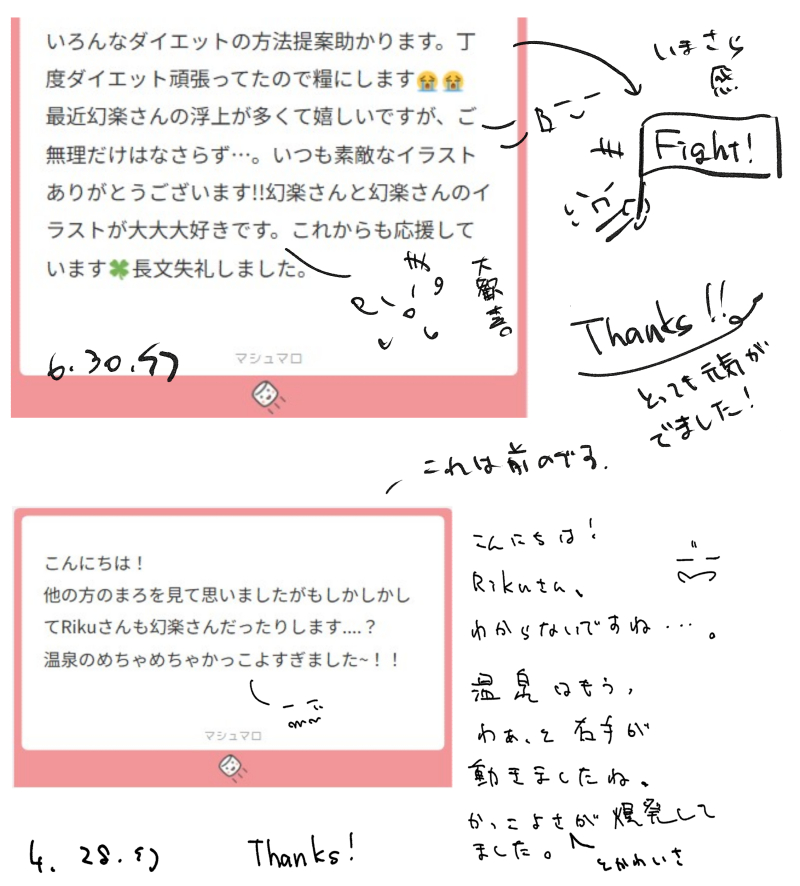 いろんなダイエットの方法提案助かります。丁
度ダイエット頑張ってたので糧にします😭😭
最近幻楽さんの浮上が多くて嬉しいですが、ご
無理だけはなさらず…。いつも素敵なイラスト
ありがとうございます!!幻楽さんと幻楽さんのイ
ラストが大大大好きです。これからも応援して
います🍀長文失礼しました。
マシュマロ
6.30.
いまさら
感
Fight!
大歓喜。
Thanks!!
とっても元気が
でました!
これは前のです.
こんにちは!
他の方のまろを見て思いましたがもしかしかし
てRikuさんも幻楽さんだったりします....?
温泉のめちゃめちゃかっこよすぎました~!!
マシュマロ
こんにちは!
Rikuさん、
わからないですね…。
温泉はもう,
わぁ、と右手が
動きましたね。
かっこよさが爆発して
ました。
とかわいさ
4.28.
Thanks!